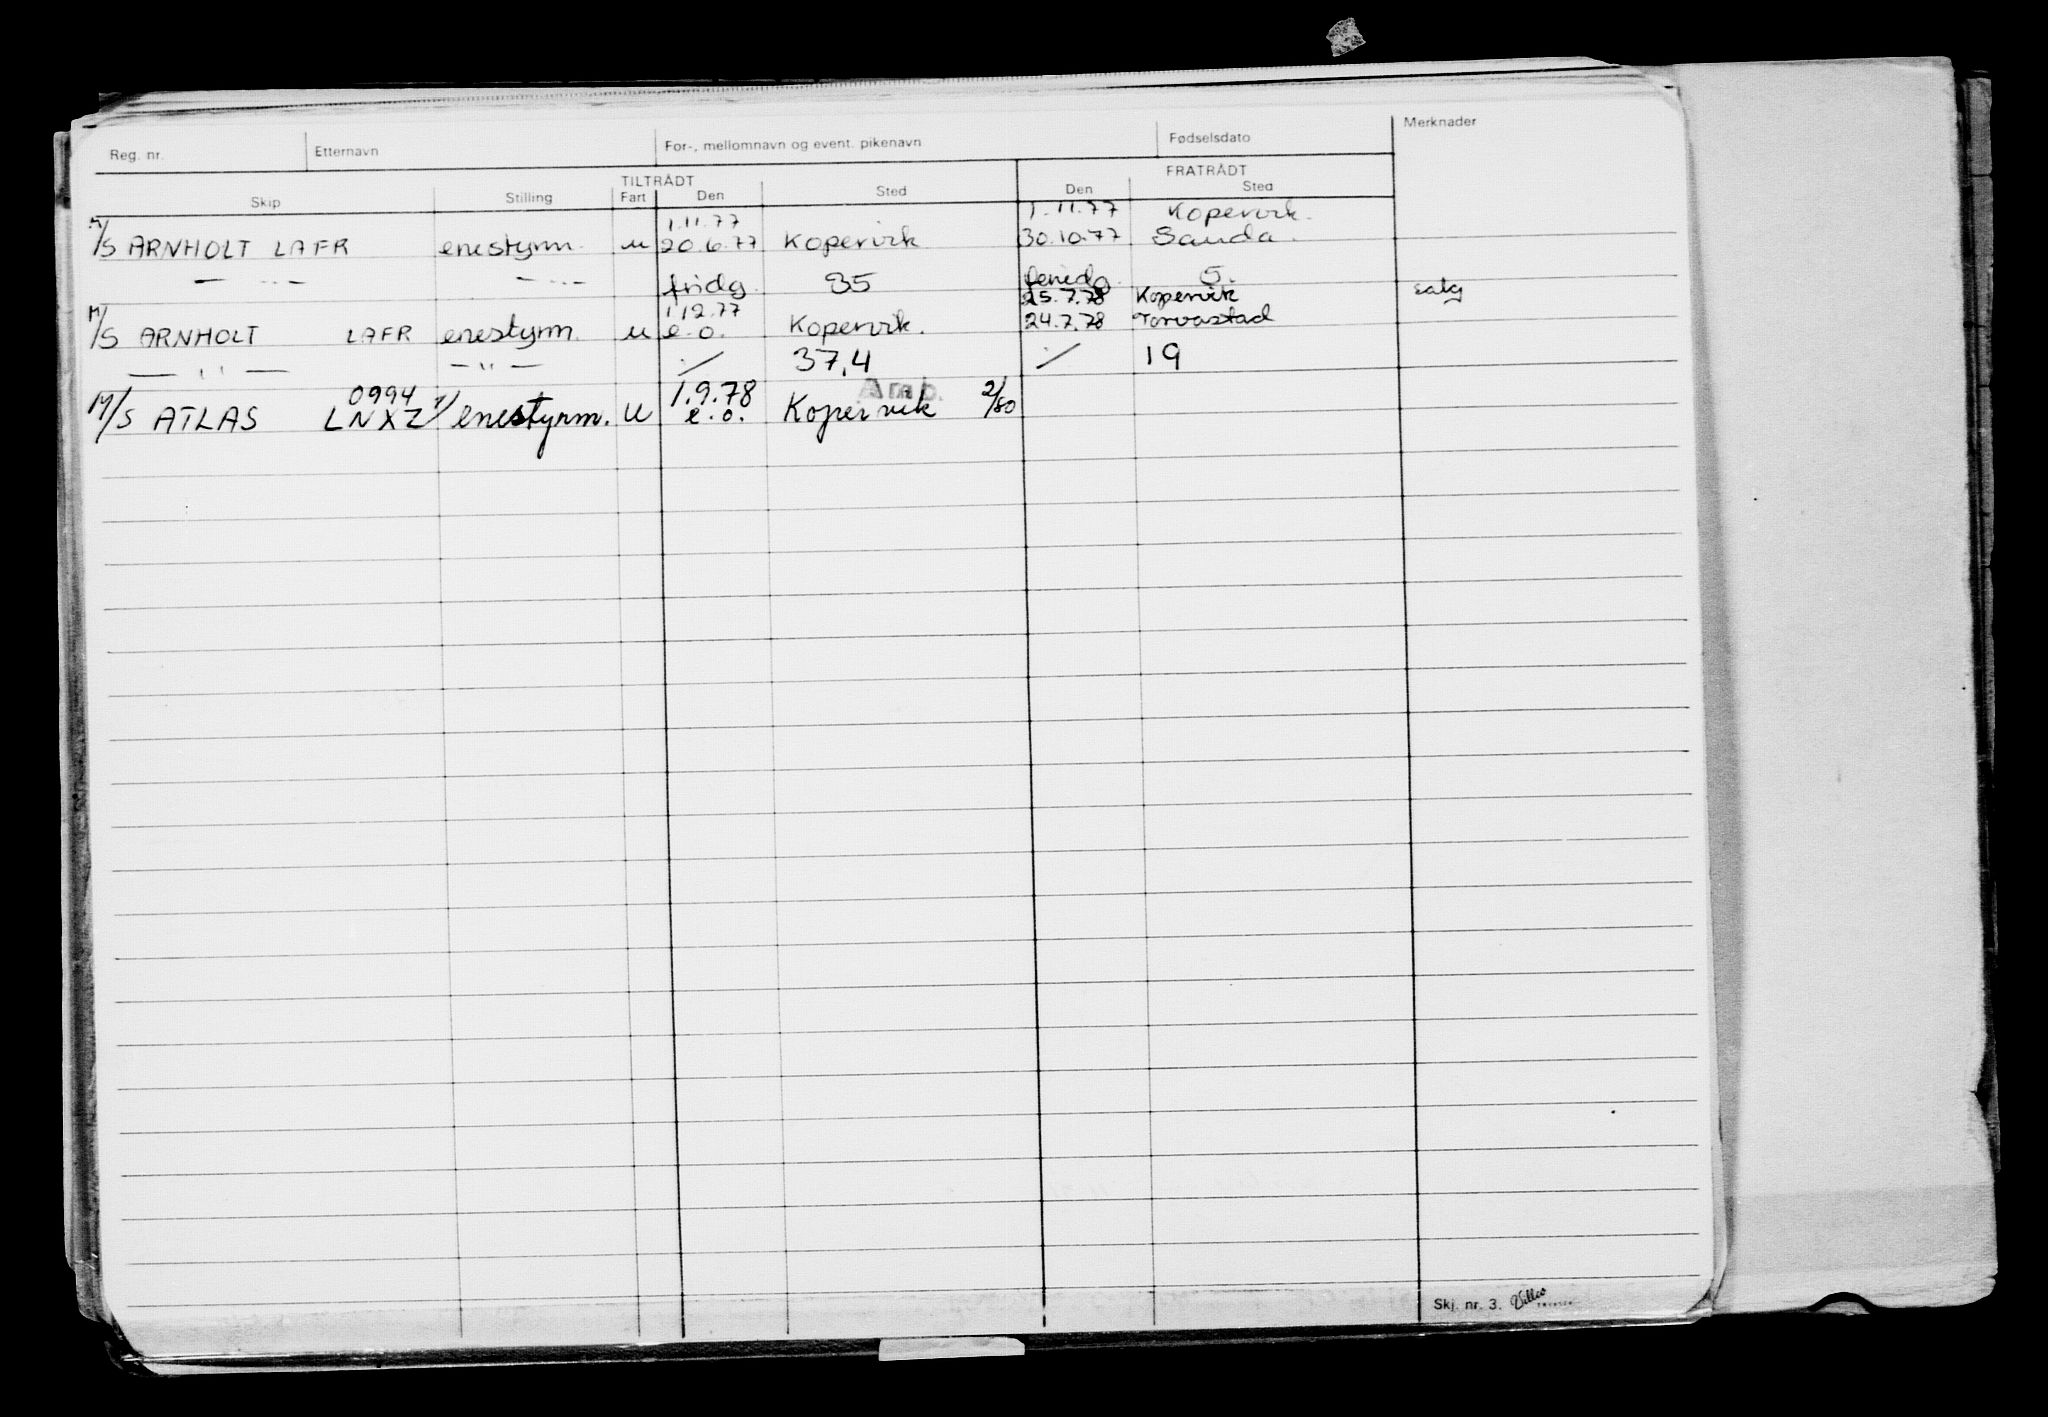 Reg. nr. Etternavn For-, mellomnavn og event. pikenavn Fødselsdato Merknader
TILTRÅDT FRATRÅDT
Skip Stilling Fart Den Sted Den Sted
1.11.77 1.11.77 Kopervik.
M/S ARNHOLT LAFR enestyrm. u 20.6.77 Kopervik 30.10.77 Sauda.
— " — — " — fridg. 35 feriedg. 5.
1.12.77 25.7.78 Kopervik salg
M/S ARNHOLT LAFR enestyrm. u e.o. Kopervik. 24.7.78 Torvastad
— " — — " — ⁒ 37,4 ⁒ 19
0994 1.9.78 Amb.
M/S ATLAS LNXZ enestyrm. u e.o. Kopervik 2/80
Skj. nr. 3.